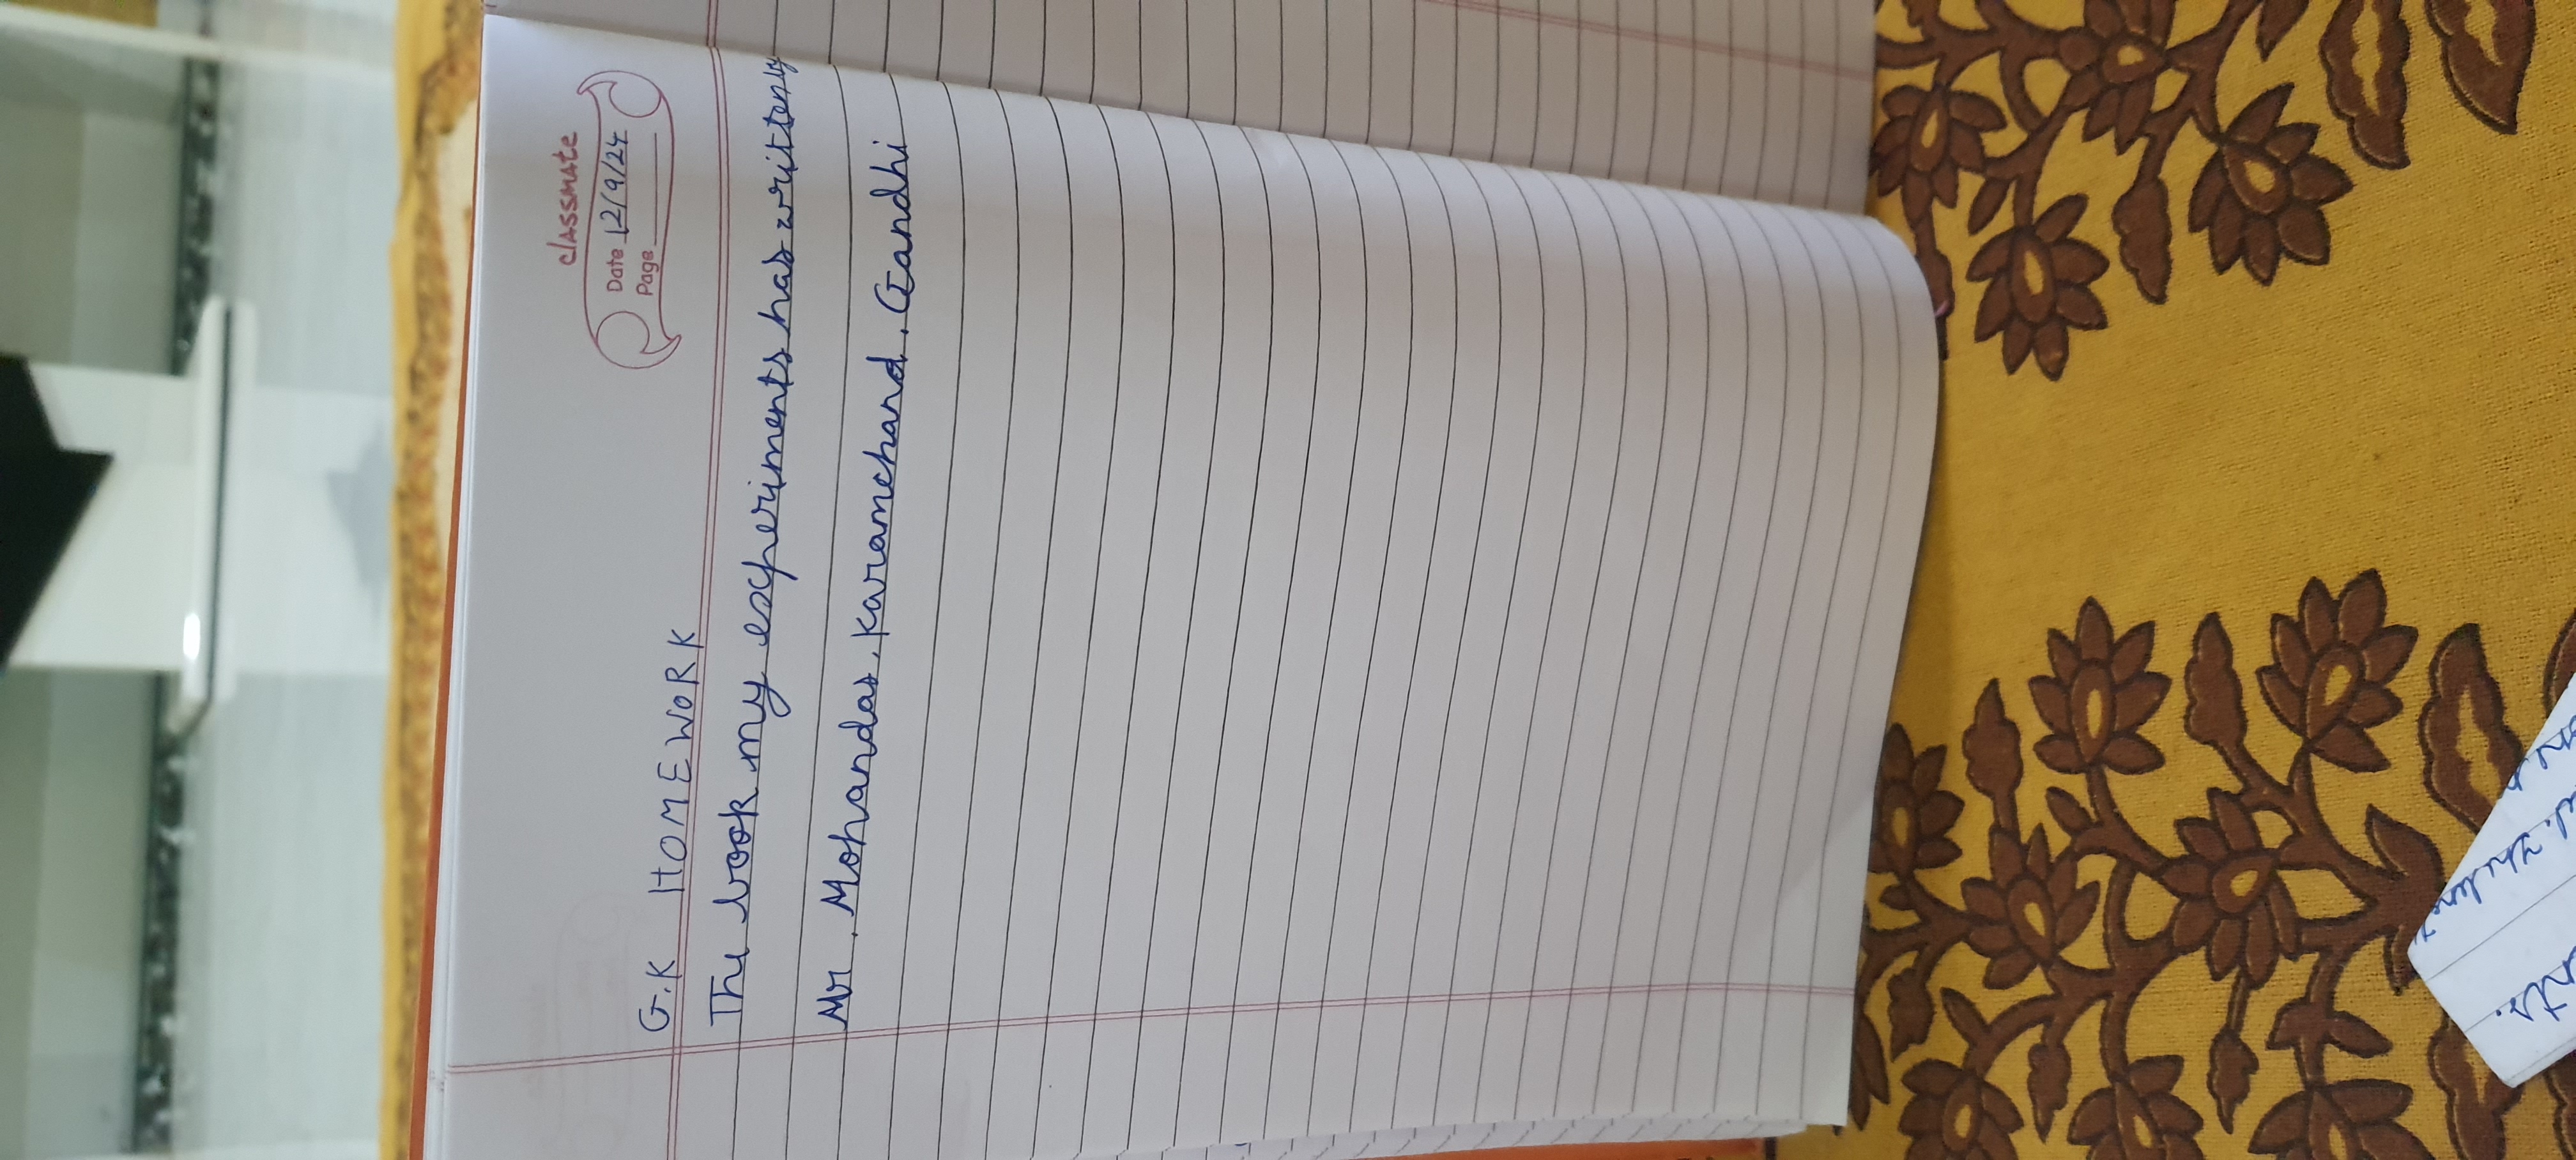 classmate
Date 12/9/24
Page
G.K HOMEWORK
The book my experiments has written by
Mr. Mohandas. karamchand. Gandhi